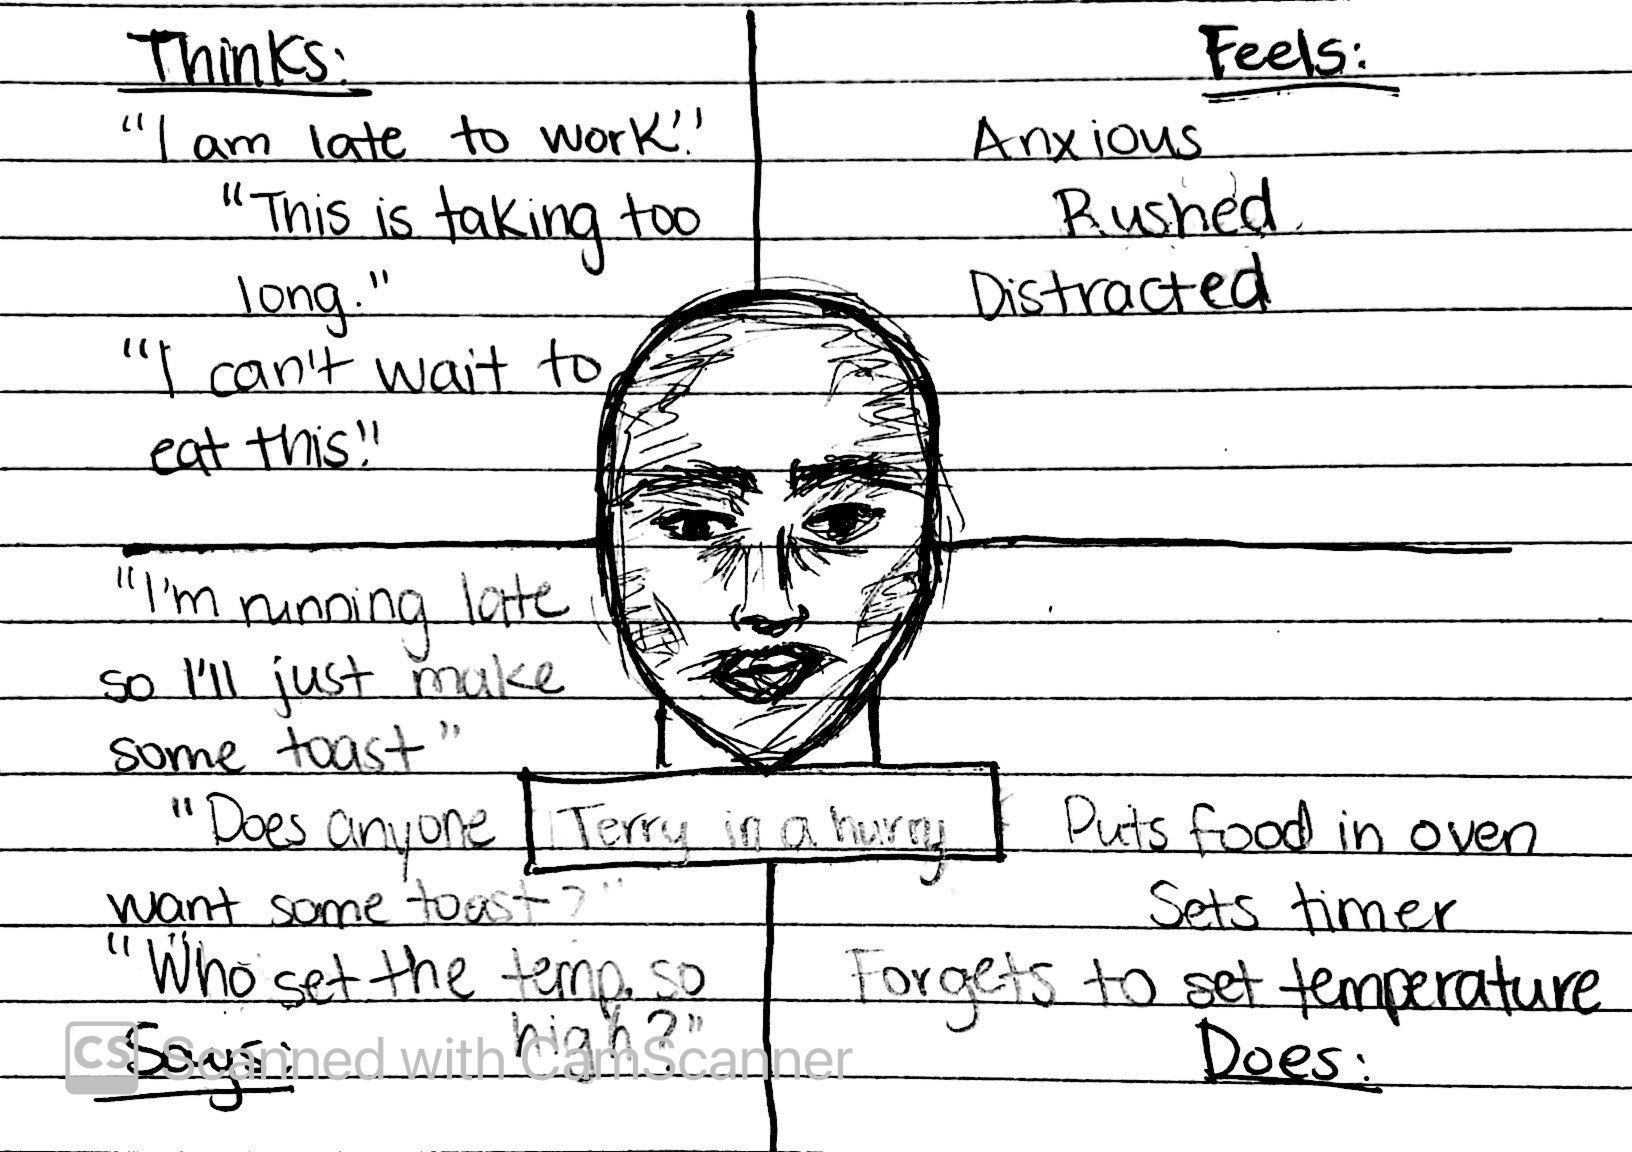 Thinks:
"I am late to work!"
"This is taking too
long."
"I can't wait to
eat this!"
Feels:
Anxious
Rushed
Distracted
"I'm running late
so I'll just make
some toast"
"Does anyone
want some toast?"
"Who set the temp. so
high?"
Says:
Terry in a hurry
Puts food in oven
Sets timer
Forgets to set temperature
Does:
CS Scanned with CamScanner